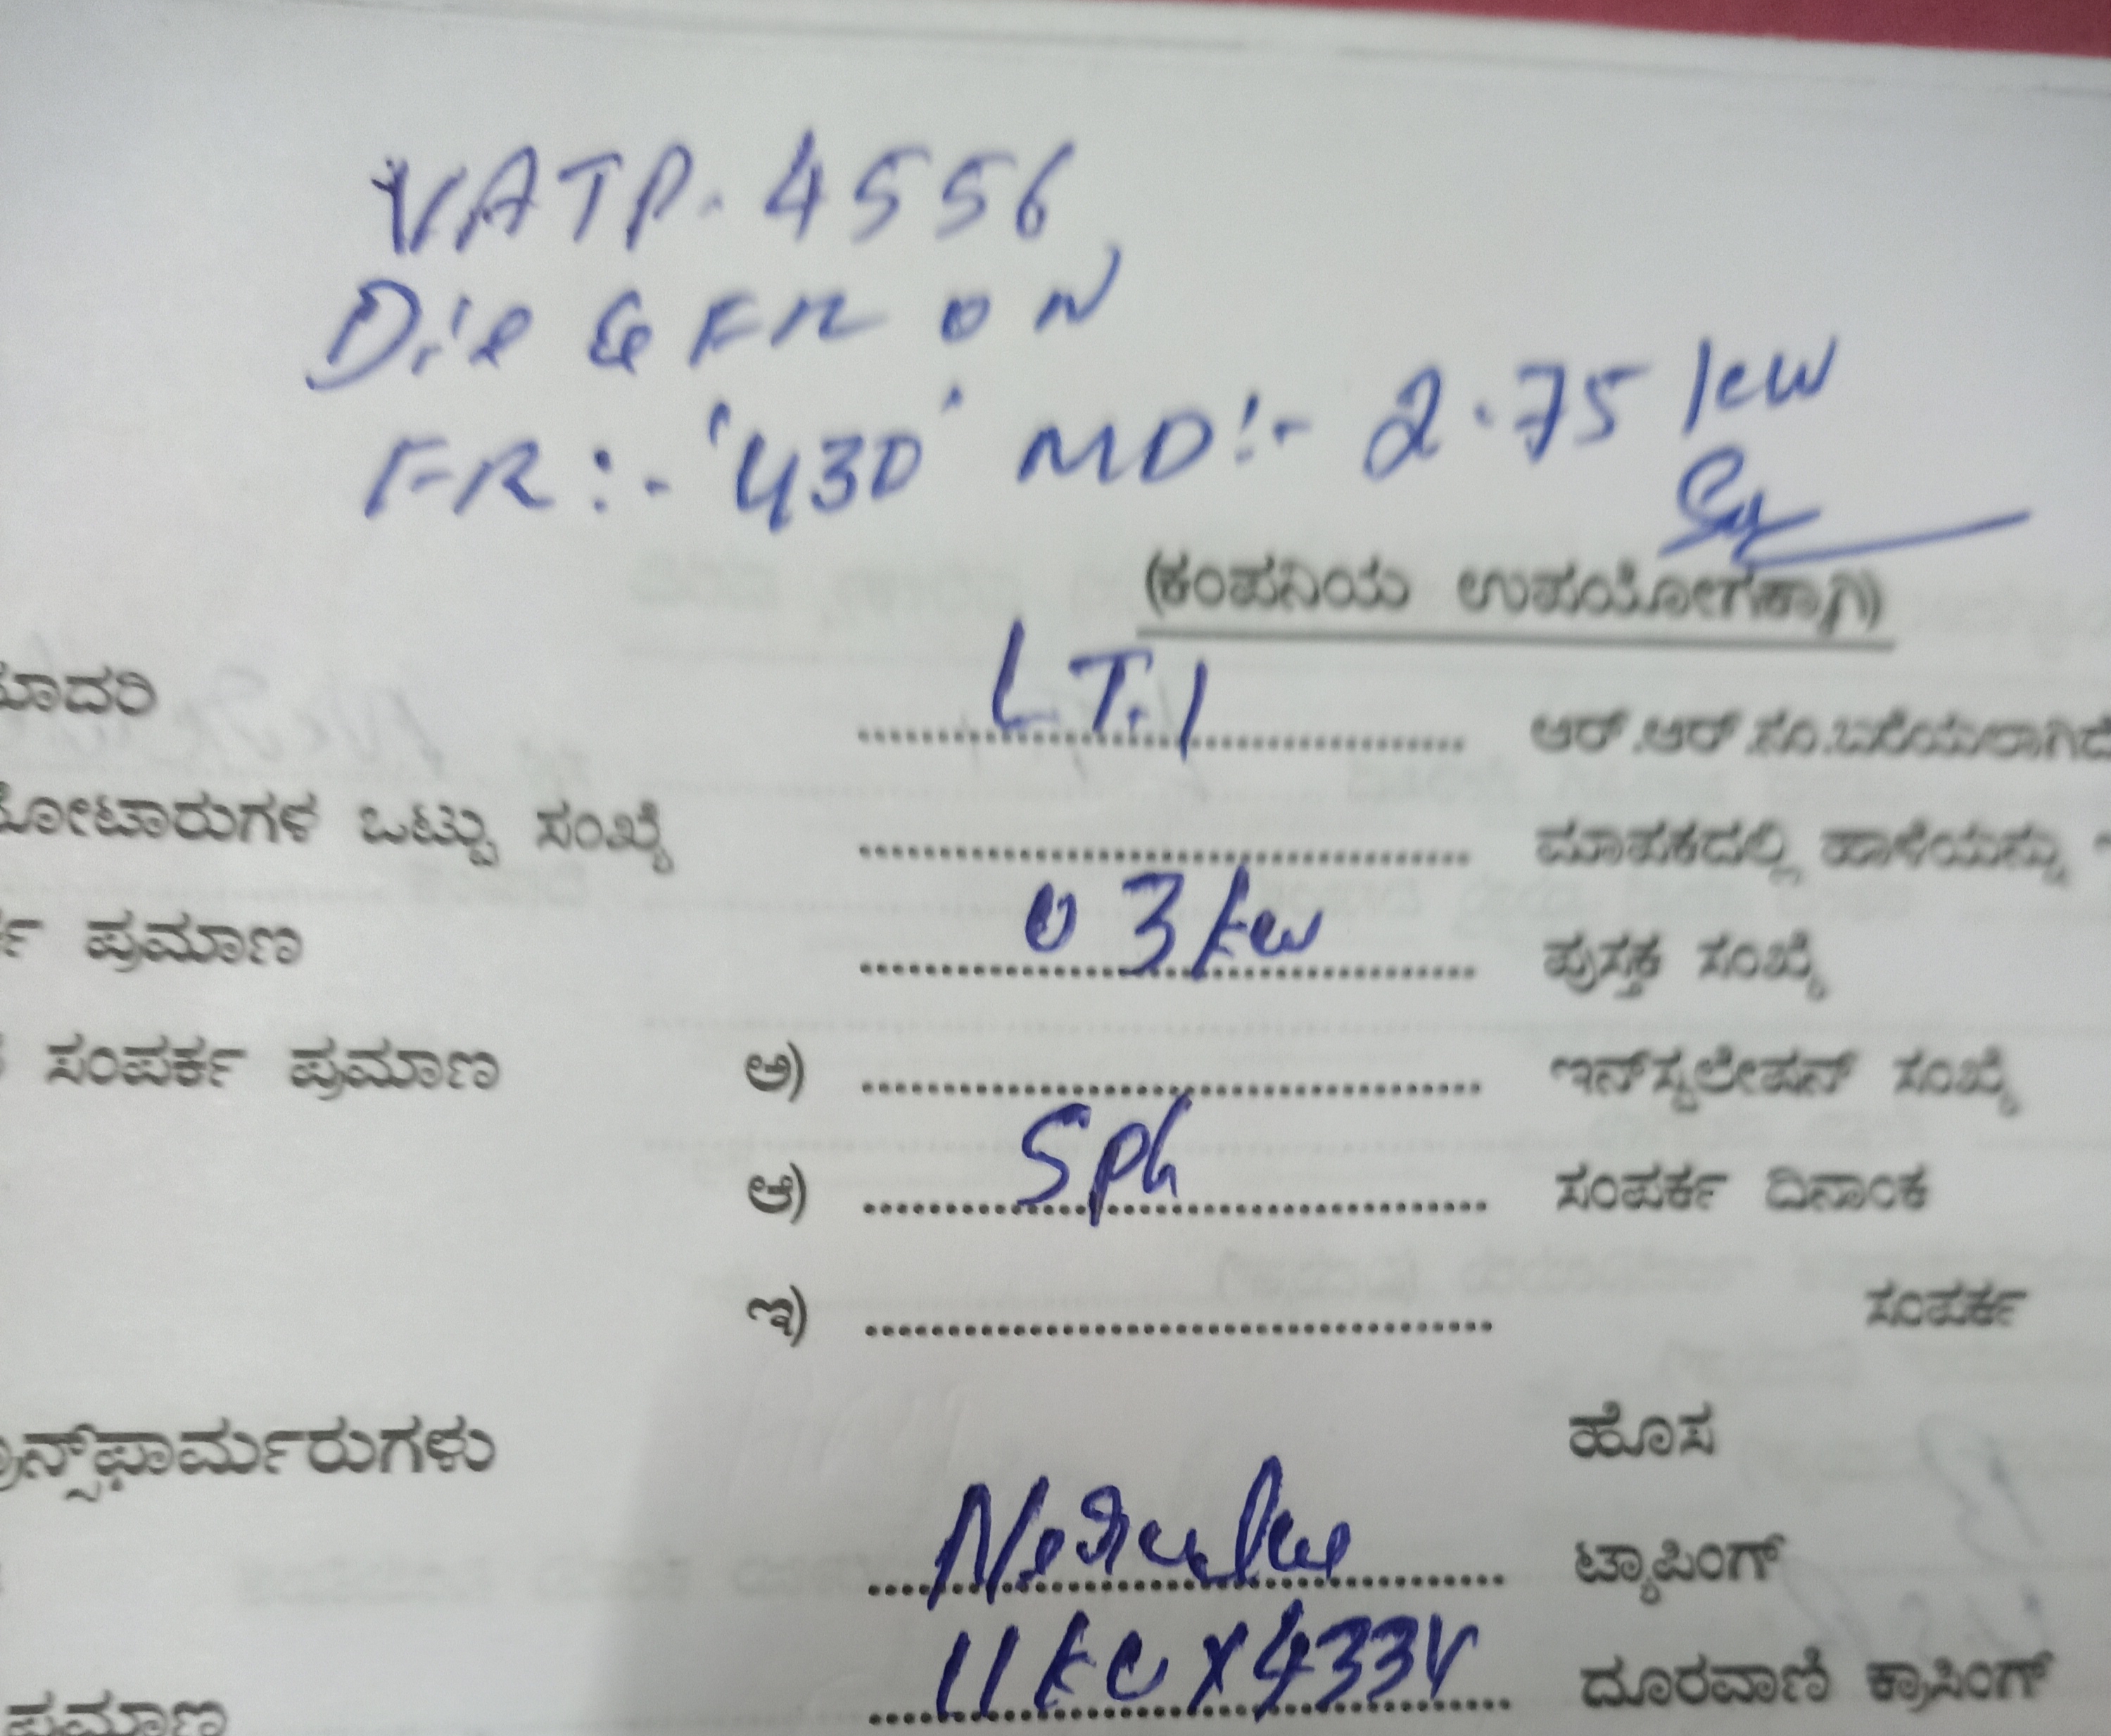 VATP. 4556
Dis & FR ON
FR :- '430' MD:- 2.75 kw
(ಕಂಪನಿಯ ಉಪಯೋಗಕ್ಕಾಗಿ)
LT.1 ಆರ್.ಆರ್.ಸಂ.ಬರೆಯಲಾಗಿದೆ
ಒಟ್ಟು ಸಂಖ್ಯೆ ಮಾಪಕದಲ್ಲಿ ಹಾಳೆಯನ್ನು
ಪ್ರಮಾಣ 03 kw ಪುಸ್ತಕ ಸಂಖ್ಯೆ
ಸಂಪರ್ಕ ಪ್ರಮಾಣ ಅ) ಇನ್‌ಸ್ಟಲೇಷನ್ ಸಂಖ್ಯೆ
ಆ) SPh ಸಂಪರ್ಕ ದಿನಾಂಕ
ಇ) ಸಂಪರ್ಕ
ಹೊಸ
ಟ್ಯಾಪಿಂಗ್
ಪ್ರಮಾಣ 11 kv X 433V ದೂರವಾಣಿ ಕ್ರಾಸಿಂಗ್